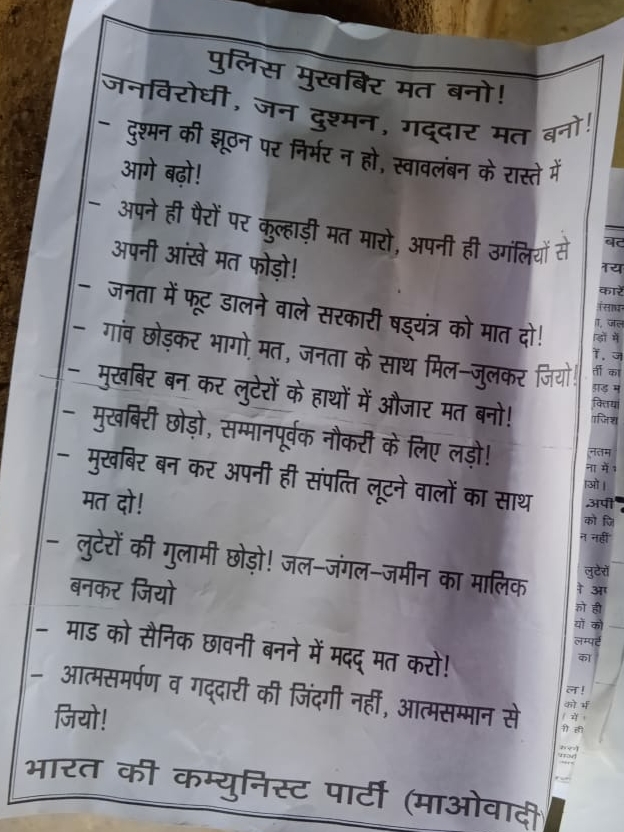 पुलिस मुखबिर मत बनो!
जनविरोधी, जन दुश्मन, गद्दार मत बनो!
- दुश्मन की झूठन पर निर्भर न हो, स्वावलंबन के रास्ते में
आगे बढ़ो!
- अपने ही पैरों पर कुल्हाड़ी मत मारो, अपनी ही उगंलियों से
अपनी आंखे मत फोड़ो!
- जनता में फूट डालने वाले सरकारी षड्यंत्र को मात दो!
- गांव छोड़कर भागो मत, जनता के साथ मिल-जुलकर जियो!
- मुखबिर बन कर लुटेरों के हाथों में औजार मत बनो!
- मुखबिरी छोड़ो, सम्मानपूर्वक नौकरी के लिए लड़ो!
- मुखबिर बन कर अपनी ही संपत्ति लूटने वालों का साथ
मत दो!
- लुटेरों की गुलामी छोड़ो! जल-जंगल-जमीन का मालिक
बनकर जियो
- माड को सैनिक छावनी बनने में मदद् मत करो!
- आत्मसमर्पण व गद्दारी की जिंदगी नहीं, आत्मसम्मान से
जियो!
भारत की कम्युनिस्ट पार्टी (माओवादी)